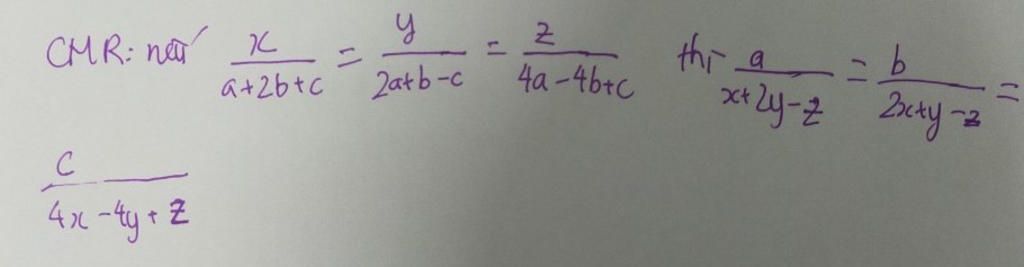 CMR: nếu x/(a+2b+c) = y/(2a+b-c) = z/(4a-4b+c) thì a/(x+2y-z) = b/(2x+y-z) =
c/(4x-4y+z)